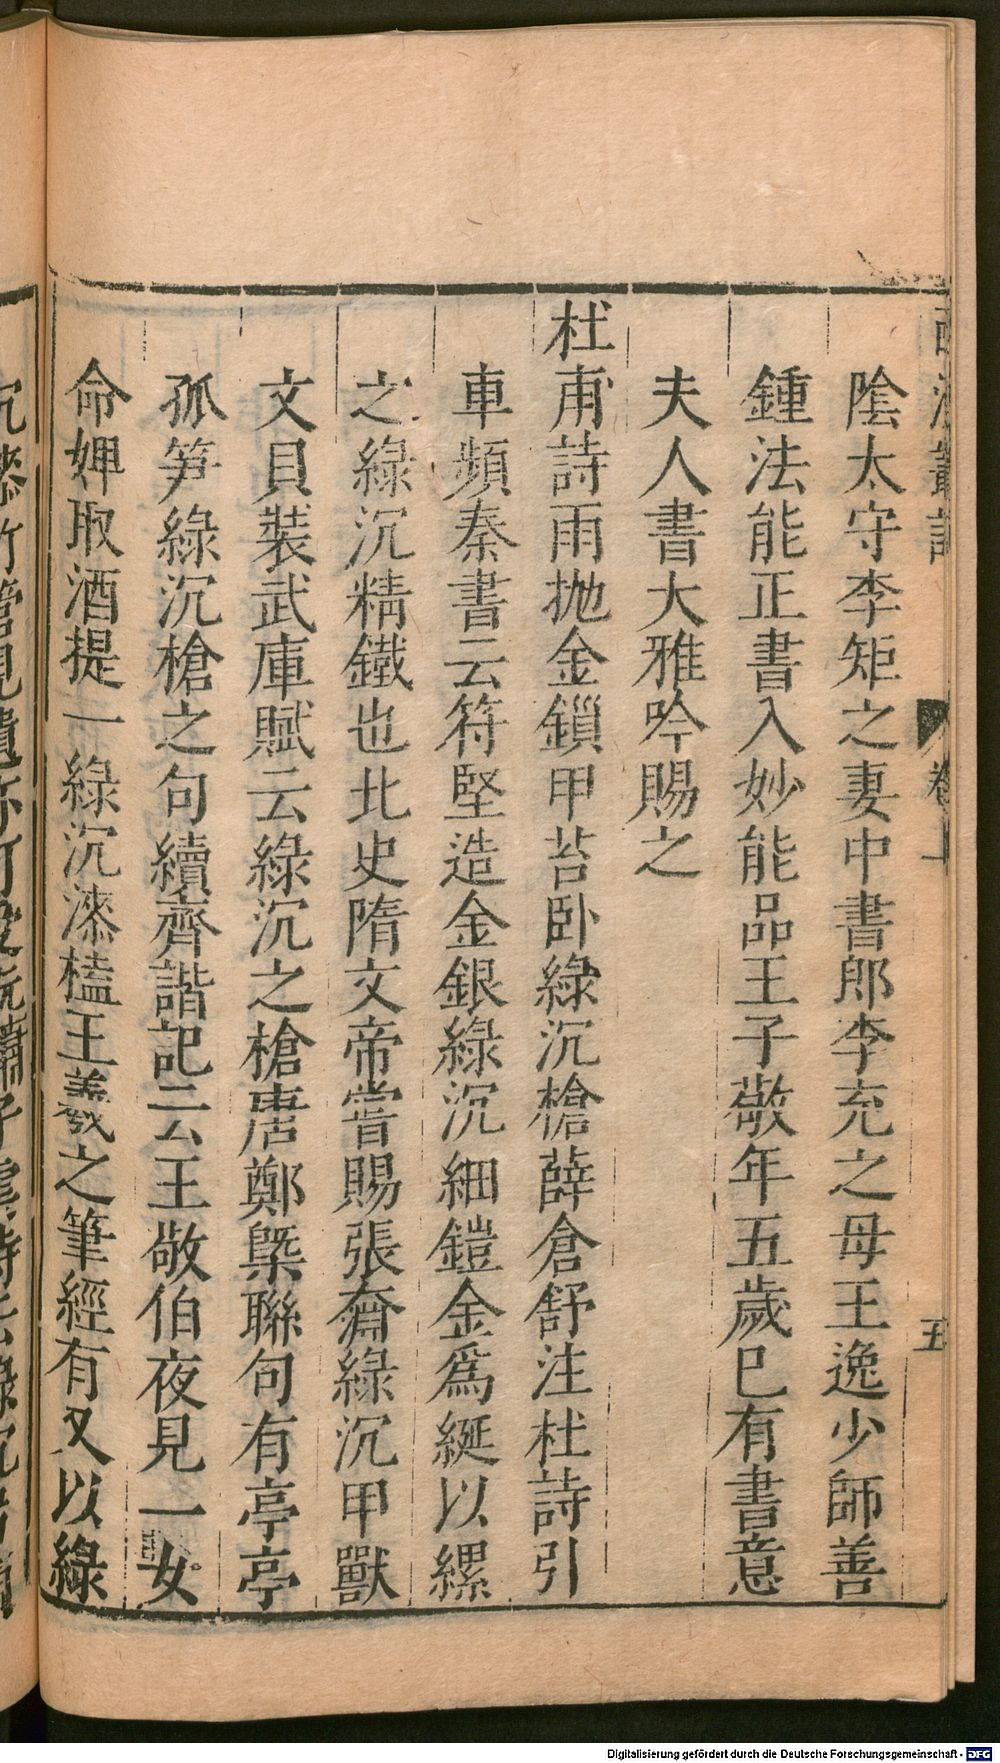 陰太守李矩之妻中書郎李充之母王逸少師善
鍾法能正書入妙能品王子敬年五歲巳有書意
夫人書大雅吟賜之
杜甫詩雨拋金鎖甲苔卧綠沉槍薛倉舒注杜詩引
車頻秦書云符堅造金銀綠沉細鎧金爲綖以縲
之綠沉精鐵也北史隋文帝嘗賜張奫綠沉甲獸
文貝裝武庫賦云綠沉之槍唐鄭槩聯句有亭亭
孤笋綠沉槍之句續齊諧記云王敬伯夜見一女
命婢取酒提一綠沉漆榼王羲之筆經有又以綠
卷上
五
Digitalisierung gefördert durch die Deutsche Forschungsgemeinschaft - DFG